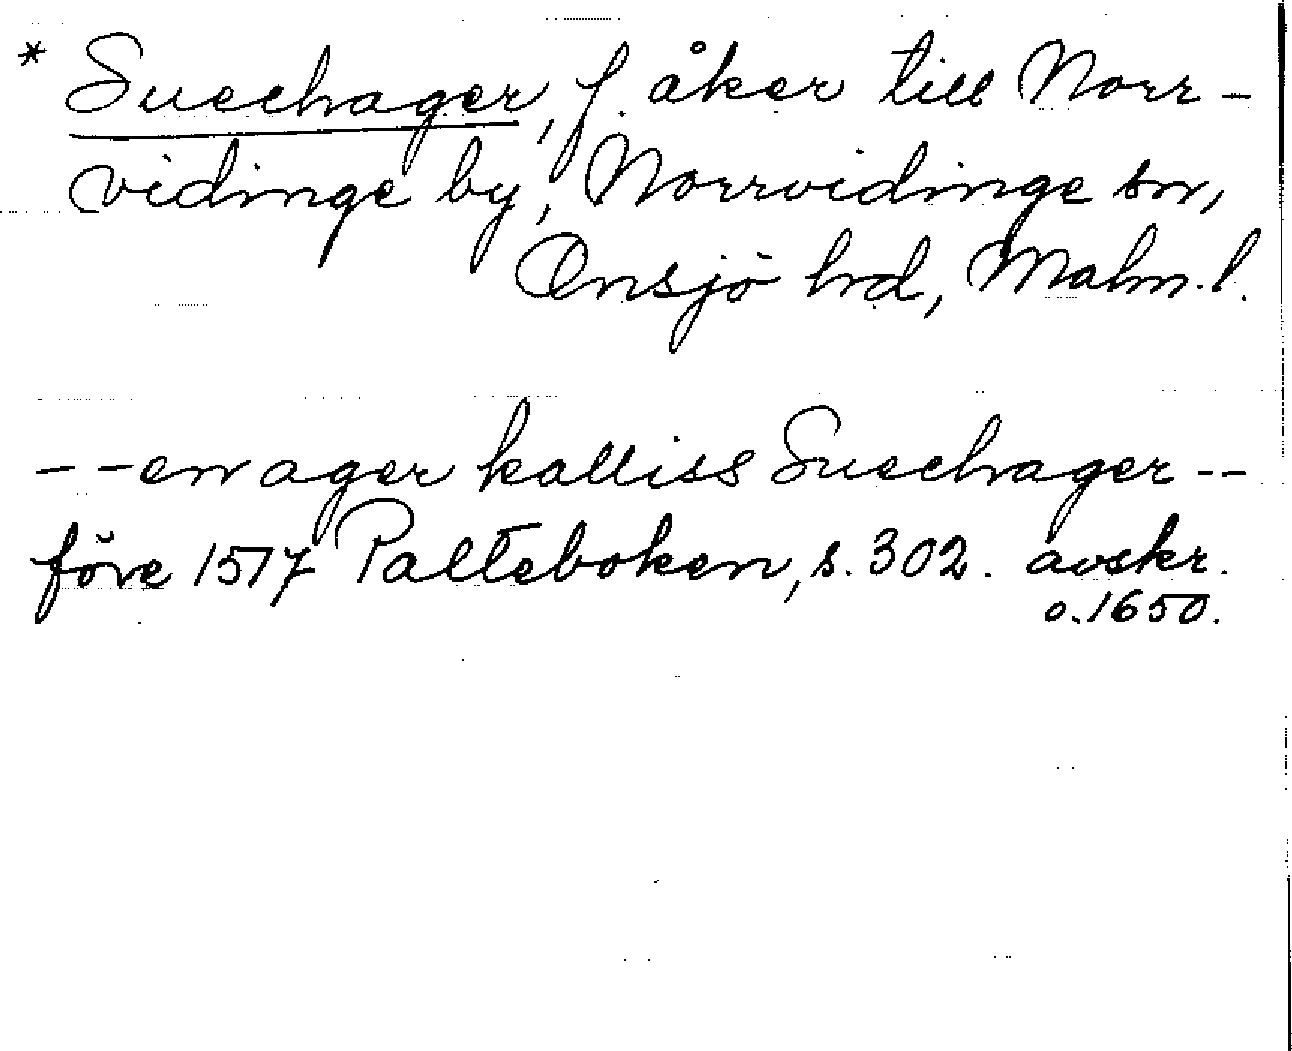 * Suechager, f. åker till Norr-
vidinge by, Norrvidinge sn,
Onsjö hd, Malm. l.
- - en ager kalliss Suechager - -
före 1517 Palteboken, s. 302. avskr.
o. 1650.